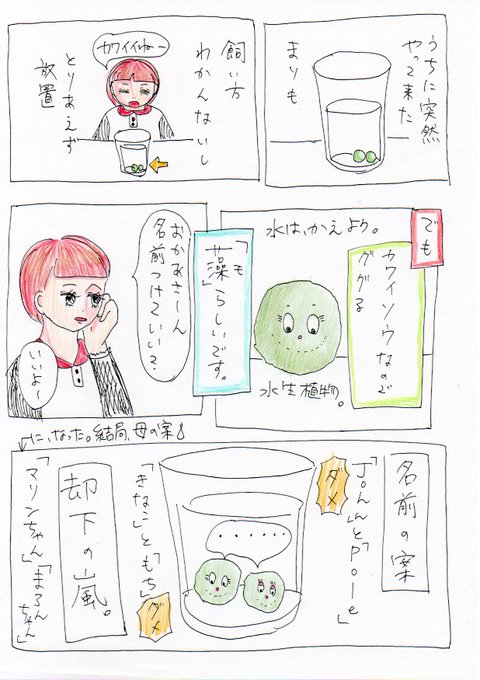 うちに突然
やって来た
まりも
飼い方
わかんないし
とりあえず
放置
カワイイねー
でも
カワイソウなので
ググる
水は、かえよう。
水生植物。
も
「藻」らしいです。
おかあさーん
名前つけていい?
いいよ〜
名前の案
「John」と「Pole」
ダメ
・・・・・・
「きなこ」と「もち」
ダメ
却下の嵐。
「マリンちゃん」「まろんちゃん」
に、なった。結局、母の案